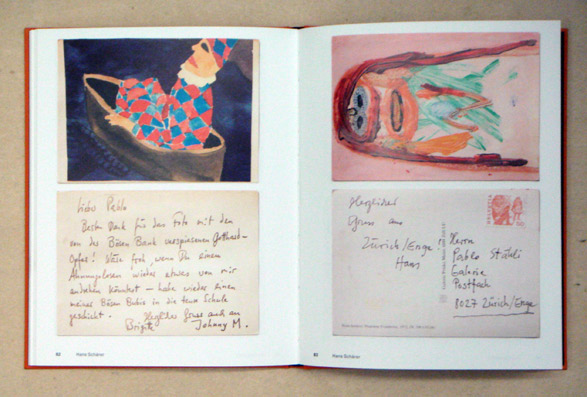 Lieber Pablo
Besten Dank für das Foto mit dem
von der Bösen Bank verspiesenen Gotthard-
Opfer! Wäre froh wenn Du einem
Ahnungslosen wieder etwas von mir
andrehen könntest – habe wieder einen
meiner Bösen Bubis in die teure Schule
geschickt.
Herzlicher Gruss auch an
Brigitt Johnny M.
92 Hans Schärer
Herzlicher
Gruss aus
Zürich/Enge!
Hans
HELVETIA
Herrn
Pablo Stähli
Galerie
Postfach
8027 Zürich/Enge
93 Hans Schärer